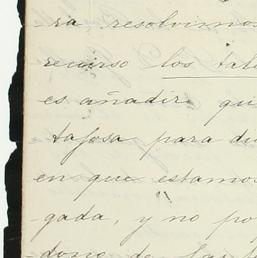 ra resolvimos
recurso los tal
es añadir qu
tafosa para du
en que estamos
gada, y no po
dono de las